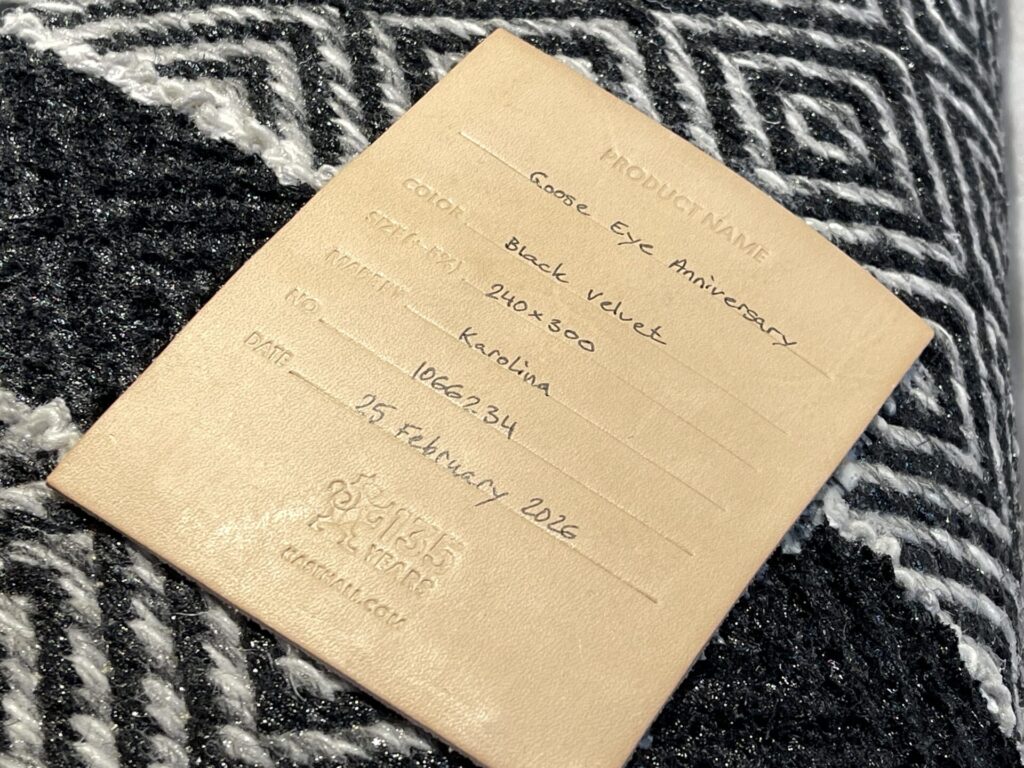 PRODUCT NAME
Goose Eye Anniversary
COLOR Black Velvet
SIZE (+-5%) 240x300
MADE BY Karolina
NO. 1066234
DATE 25 February 2026
135
YEARS
KASTHALL.COM